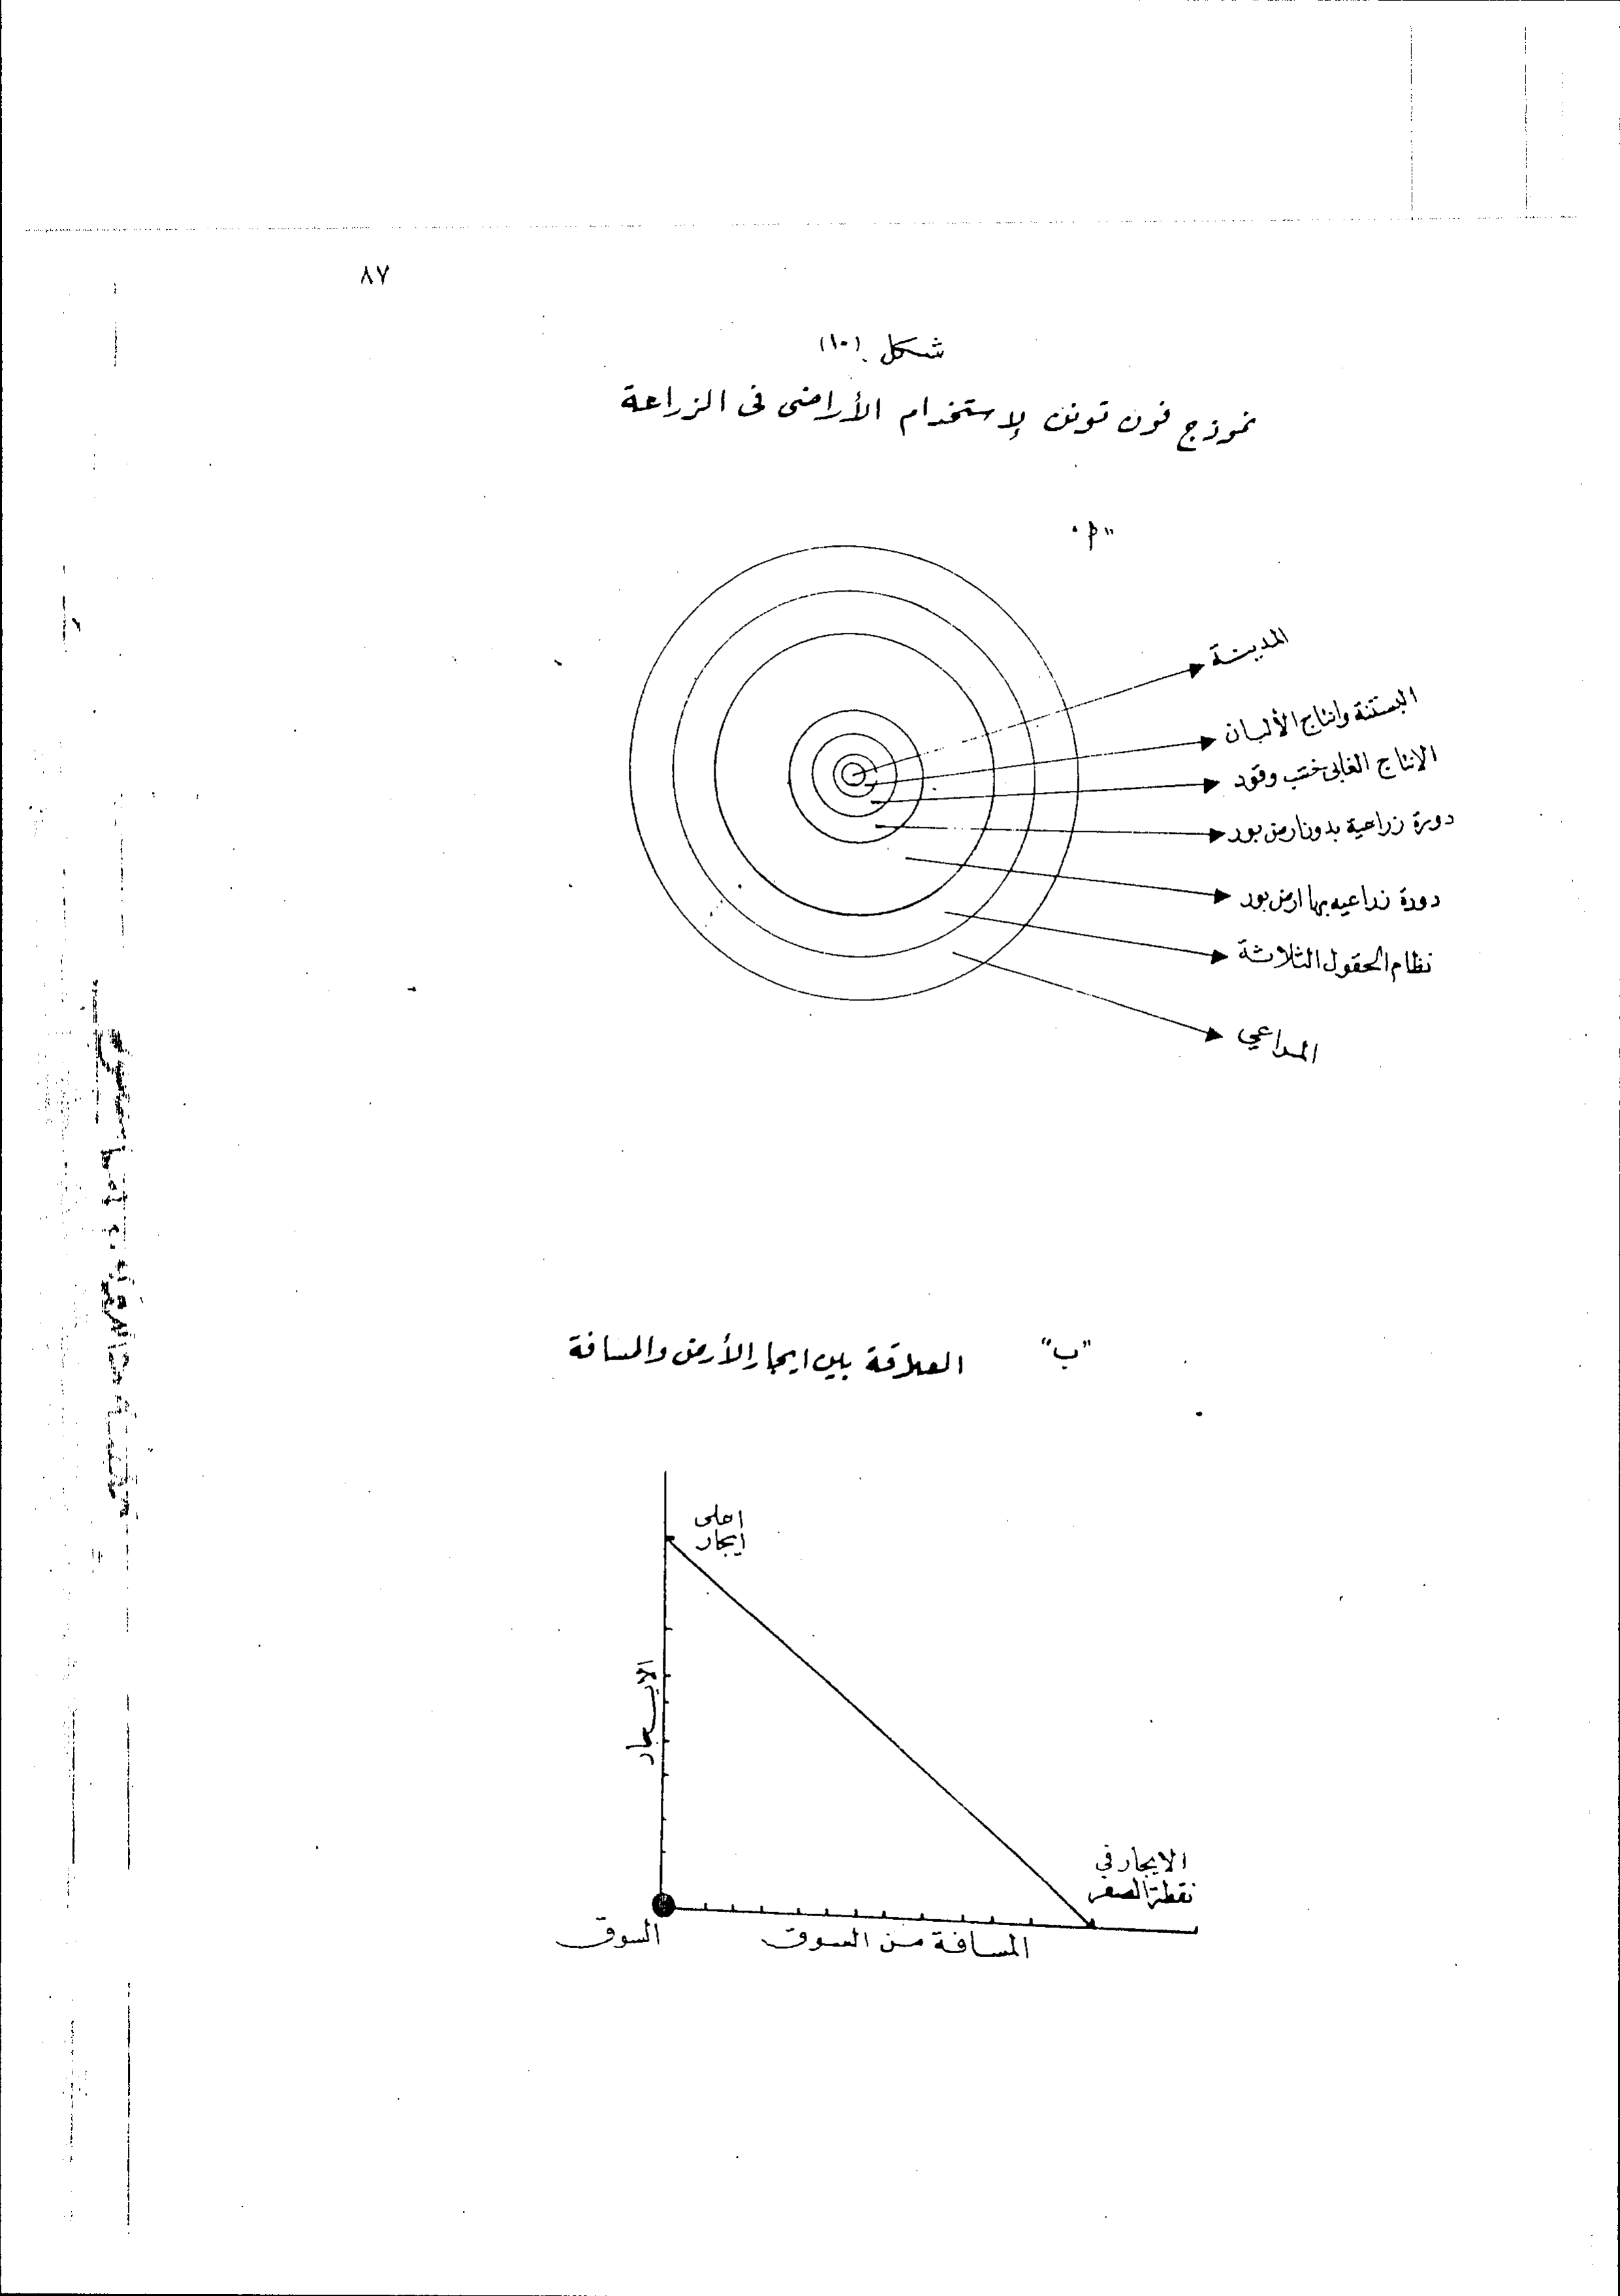 ٨٧
شكل (١٠)
نموذج فون تونن لإستخدام الأراضى فى الزراعة
"أ"
المدينة
البستنة وانتاج الألبان
الانتاج الغابى خشب وقود
دورة زراعية بدون ارض بور
دورة زراعيه بها ارض بور
نظام الحقول الثلاثة
المراعي
"ب" العلاقة بين ايجار الأرض والمسافة
اعلى
ايجار
الايجار
الايجار في
نقطة الصفر
السوق
المسافة من السوق